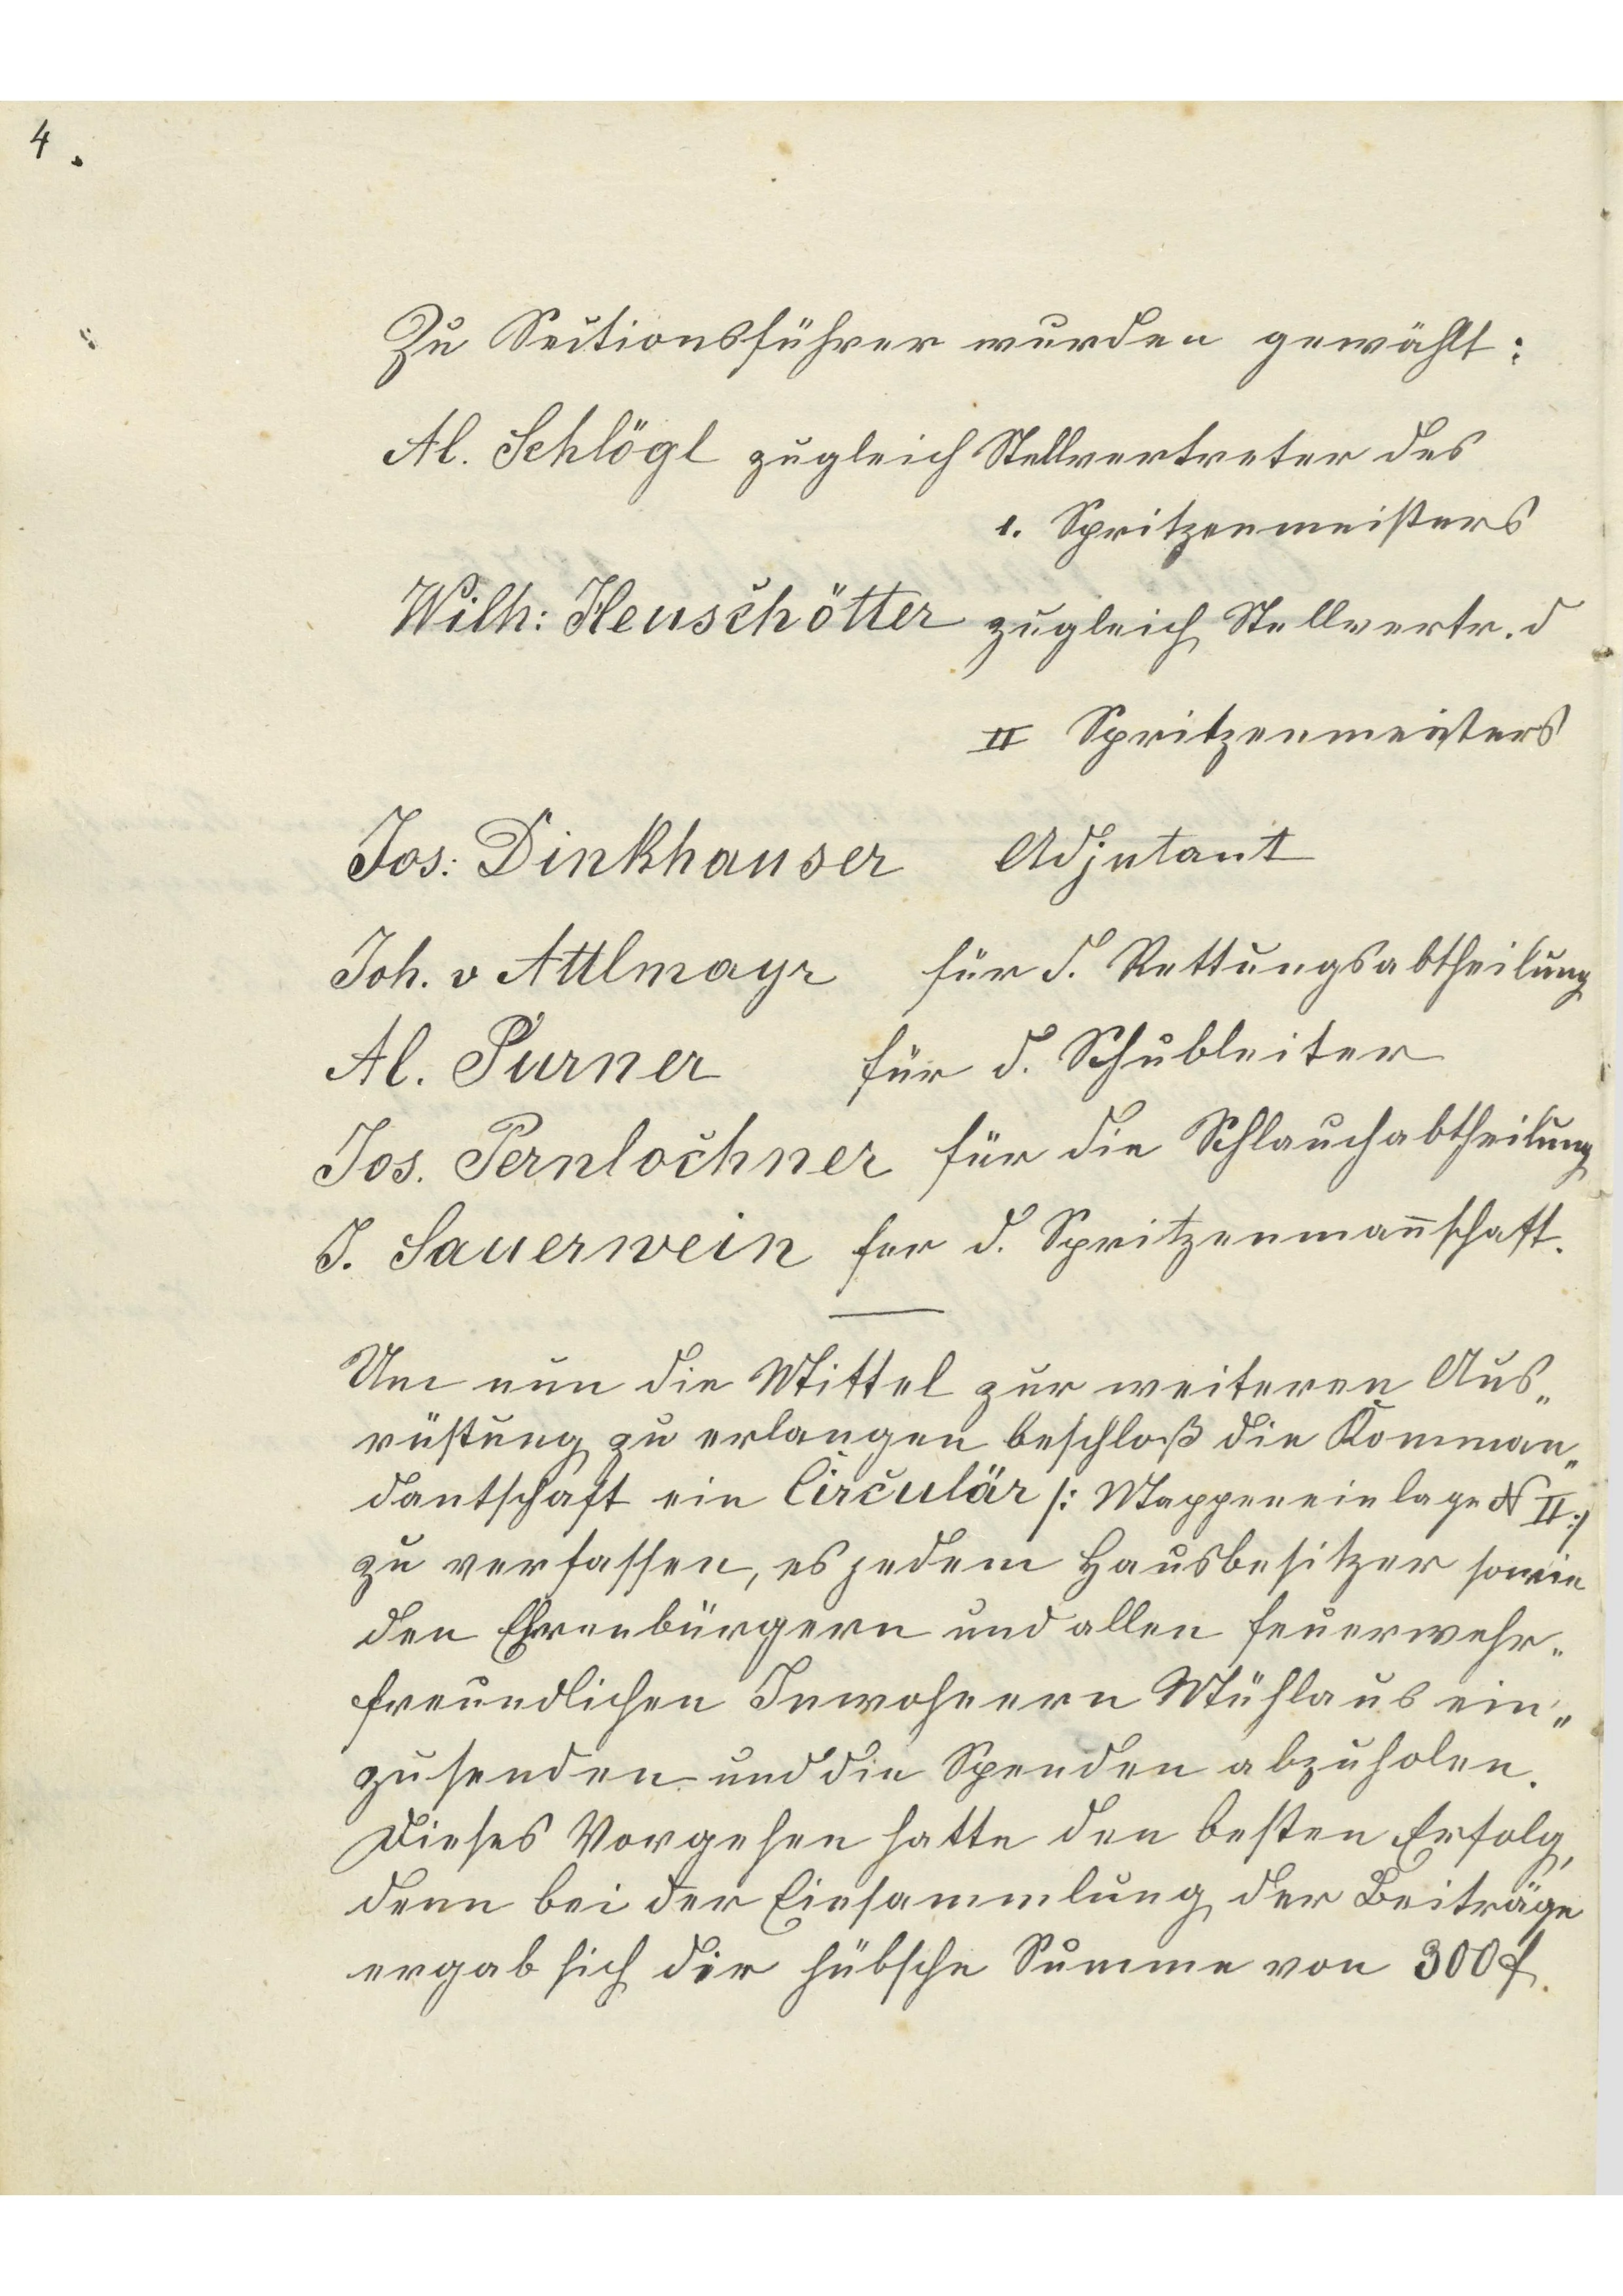 4.
Zu Sectionsführer wurden gewählt:
Al. Schlögl zugleich Stellvertreter des
1. Spritzenmeisters
Wilh: Heuschötter zugleich Stellvertr. d
II Spritzenmeisters
Jos: Dinkhauser Adjutant
Joh. v Attlmayr für d. Rettungsabtheilung
Al. Purner für d. Schubleiter
Jos. Pernlochner für die Schlauchabtheilung
J. Sauerwein fer d. Spritzenman̄schaft.
Um nun die Mittel zur weiteren Aus„
rüstung zu erlangen beschloß die Komman„
dantschaft ein Circulär /: Mappeneinlage N II :/
zu verfassen, es jedem Hausbesitzer sowie
den Ehrenbürgern und allen feuerwehr„
freundlichen Inwohnern Mühlaus ein„
zusenden und die Spenden abzuholen.
Dieses Vorgehen hatte den besten Erfolg,
denn bei der Einsammlung der Beiträge
ergab sich die hübsche Summe von 300 f.